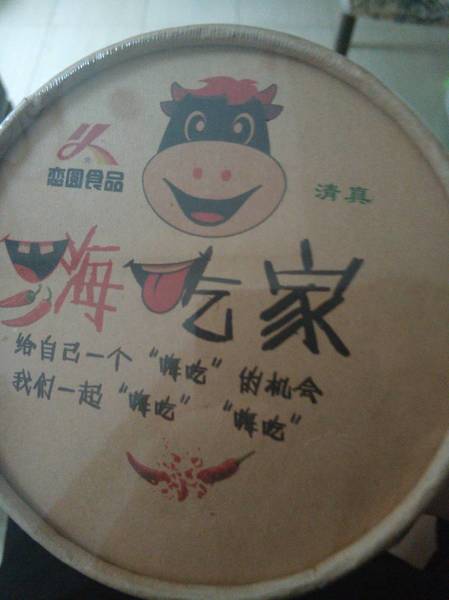 恋圆食品
清真
嗨吃家
给自己一个“嗨吃”的机会
我们一起“嗨吃”“嗨吃”